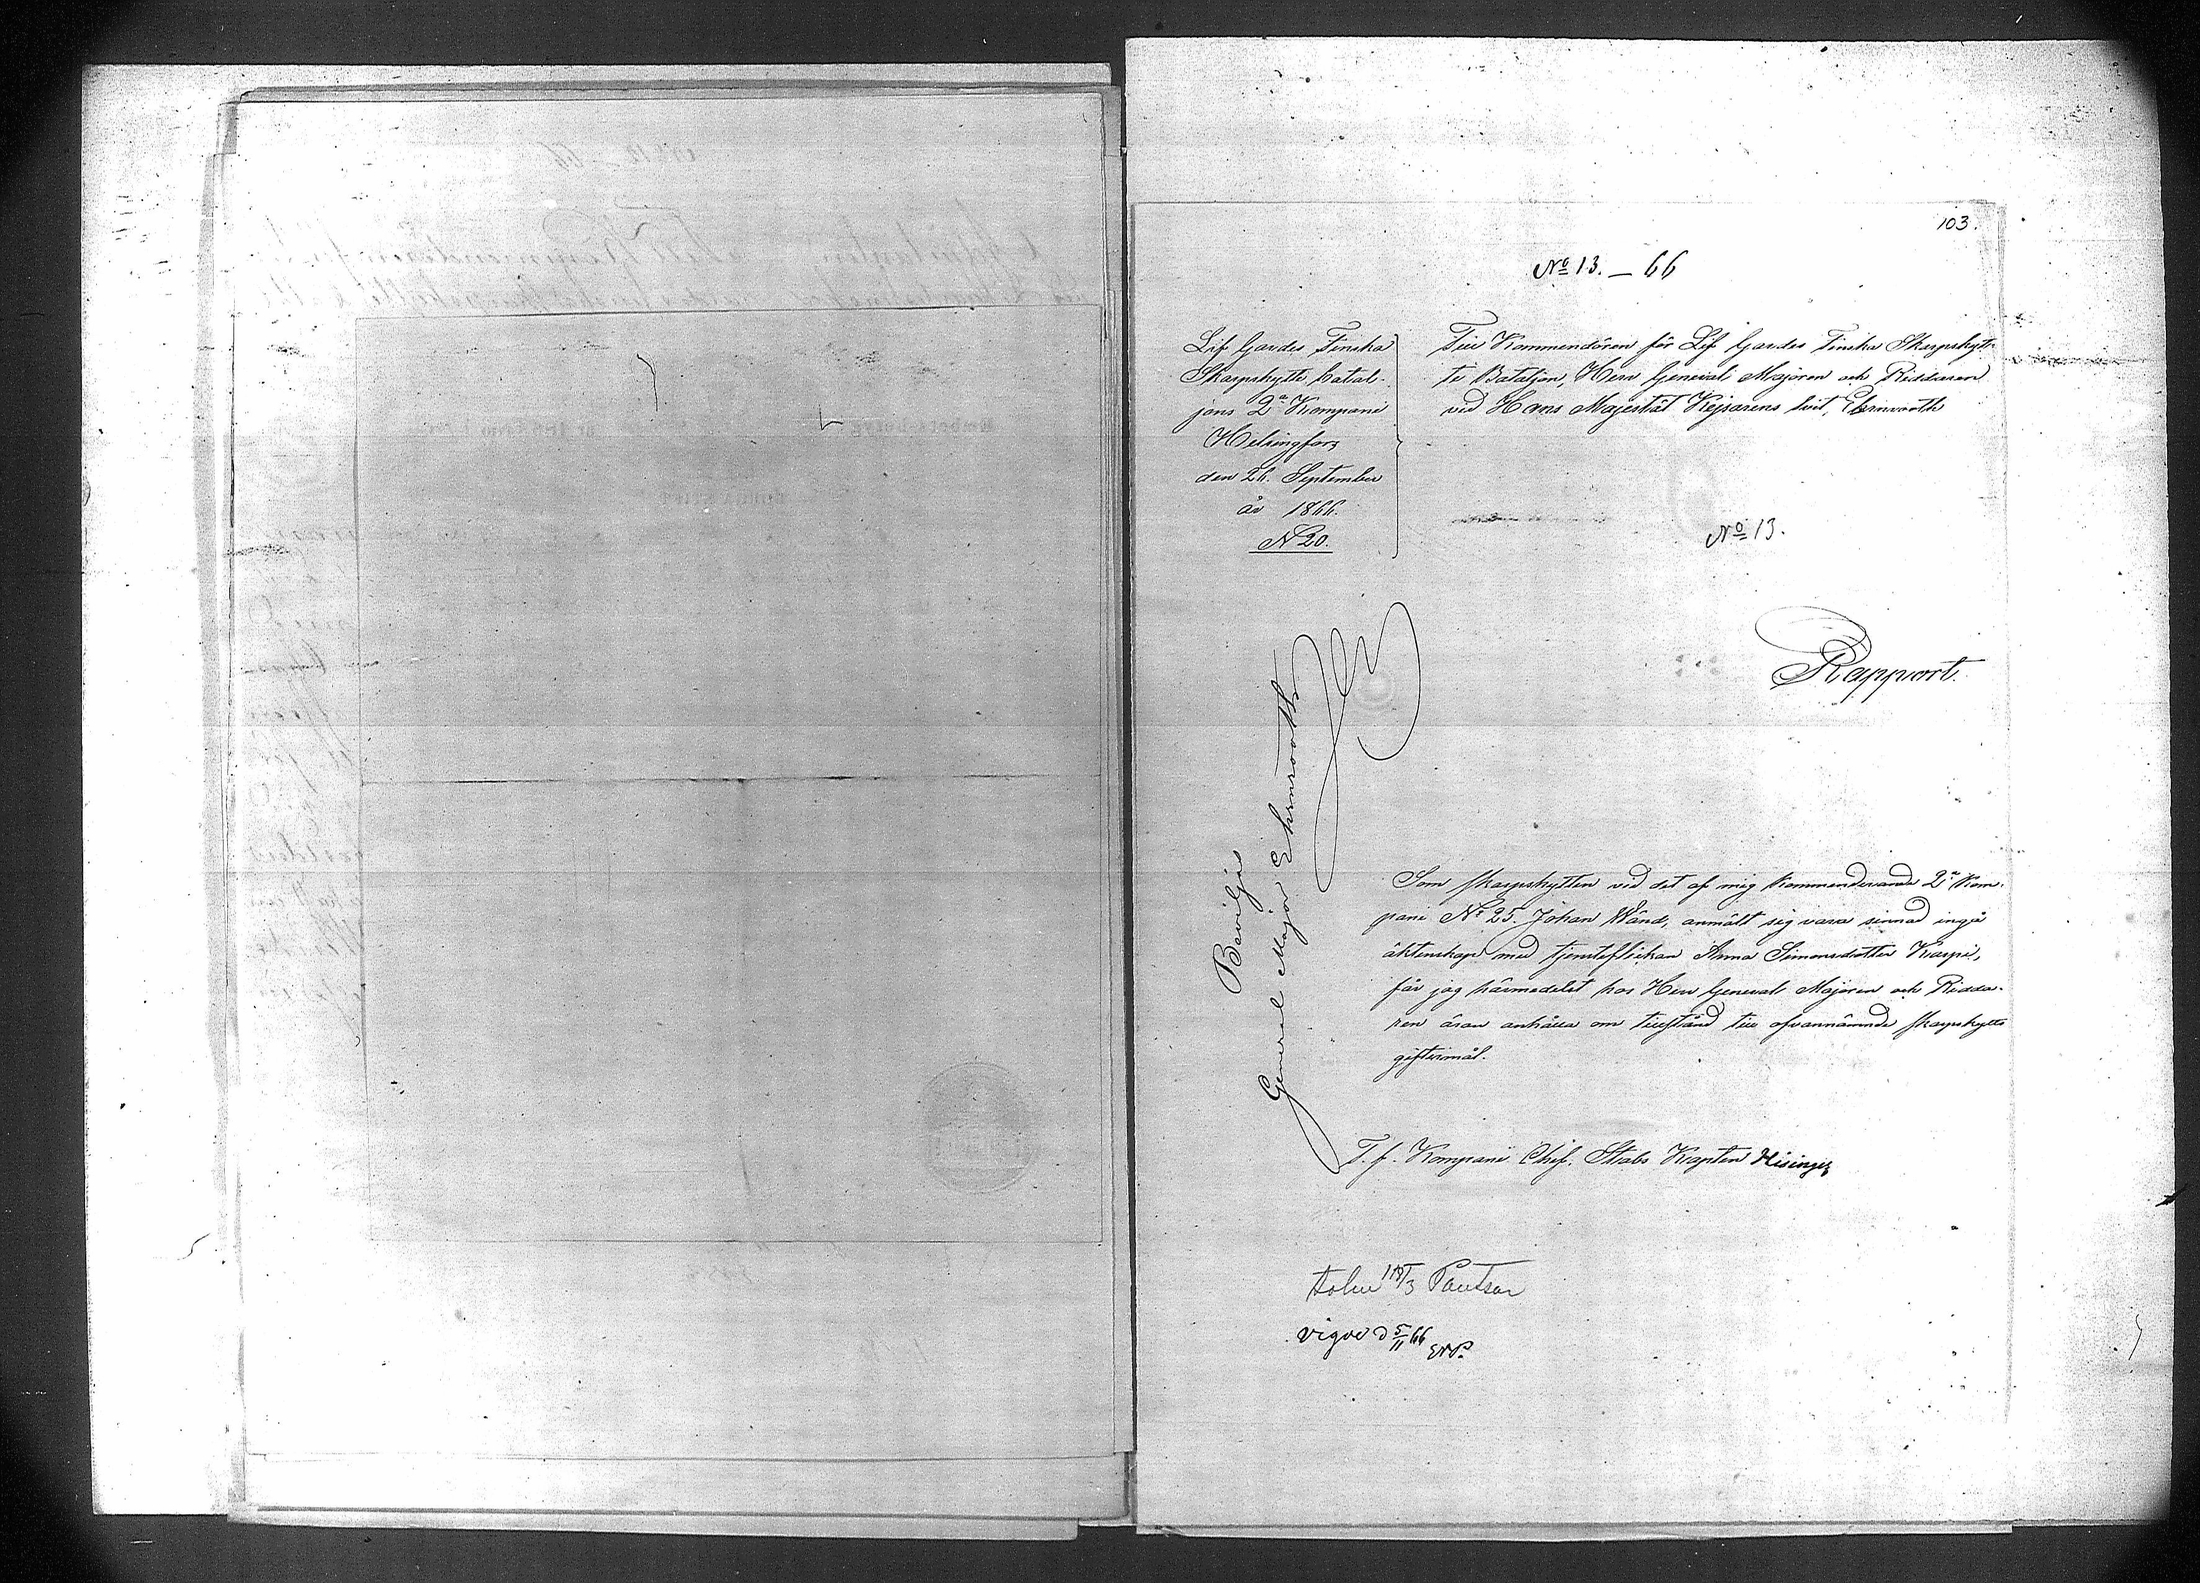 103.
No 13. – 66
Lif Gardes Finska
Skarpskytte batal-
jons 2a Kompani
Helsingfors
den 26. September
år 1866.
N 20.
Till Kommendören för Lif Gardes Finska Skarpskyt-
te Bataljon, Herr General Majoren och Riddaren
vid Hans Majestät Kejsarens Svit, Ehrnrooth
No 13.
Rapport.
Beviljas
General Major Ehrnrooth
Som skarpskytten vid det af mig kommenderande 2a Kom-
pani No 25. Johan Wänd, anmält sig vara sinnad ingå
äktenskap med tjensteflickan Anna Simonsdotter Karpi,
får jag härmedelst hos Herr General Majoren och Ridda-
ren äran anhålla om tillstånd till ofvannämnde skarpskytts
giftermål.
T. f. Kompani Chef. Stabs Kapten Hisinger
vigde d 5/11 66